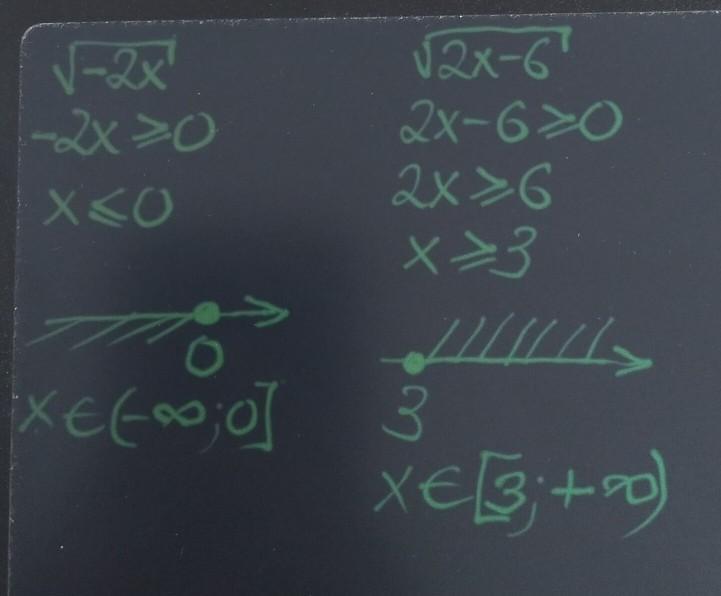 √-2x
-2x ⩾ 0
x ⩽ 0
0
x ∈ (-∞; 0]
√2x-6
2x-6 ⩾ 0
2x ⩾ 6
x ⩾ 3
3
x ∈ [3; +∞)